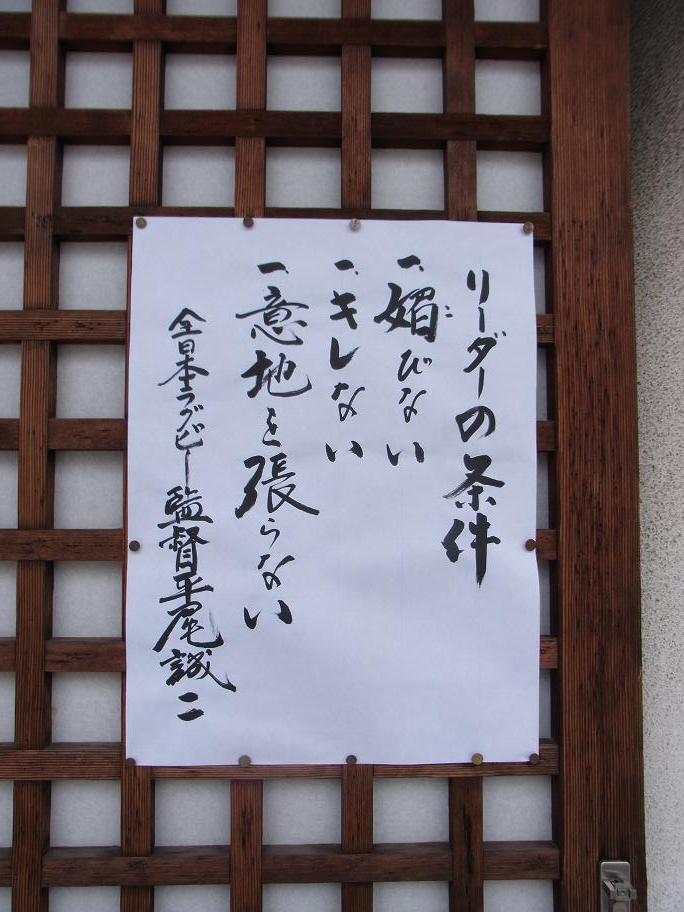 リーダーの条件
一、媚びない
こ
一、キレない
一、意地を張らない
全日本ラグビー監督平尾誠二